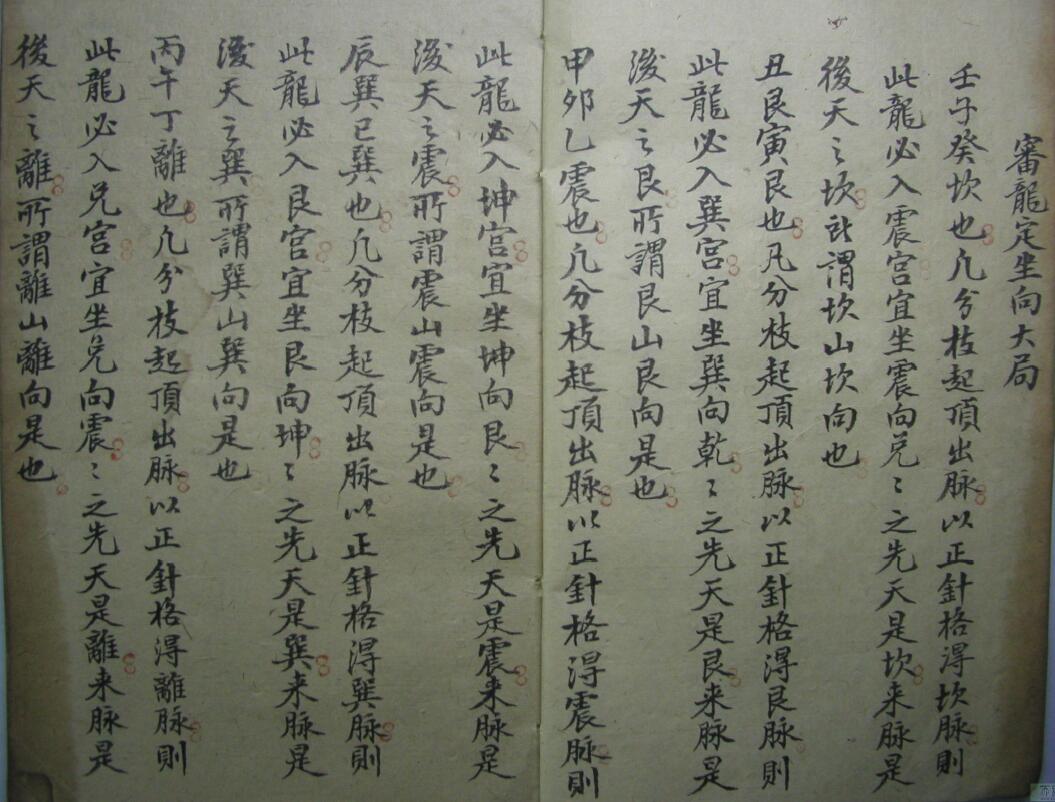 審龍定坐向大局
壬子癸坎也凢分枝起頂出脉以正針格得坎脉則
此龍必入震宮宜坐震向兑〻之先天是坎来脉是
後天之坎所謂坎山坎向也
丑艮寅艮也凡分枝起頂出脉以正針格得艮脉則
此龍必入巽宮宜坐巽向乾〻之先天是艮来脉是
後天之艮所謂艮山艮向是也
甲卯乙震也凢分枝起頂出脉以正針格得震脉則
此龍必入坤宮宜坐坤向艮〻之先天是震来脉是
後天之震所謂震山震向是也
辰巽巳巽也凢分枝起頂出脉以正針格得巽脉則
此龍必入艮宮宜坐艮向坤〻之先天是巽来脉是
後天之巽所謂巽山巽向是也
丙午丁離也凢分枝起頂出脉以正針格得離脉則
此龍必入兑宮宜坐兑向震〻之先天是離来脉是
後天之離所謂離山離向是也